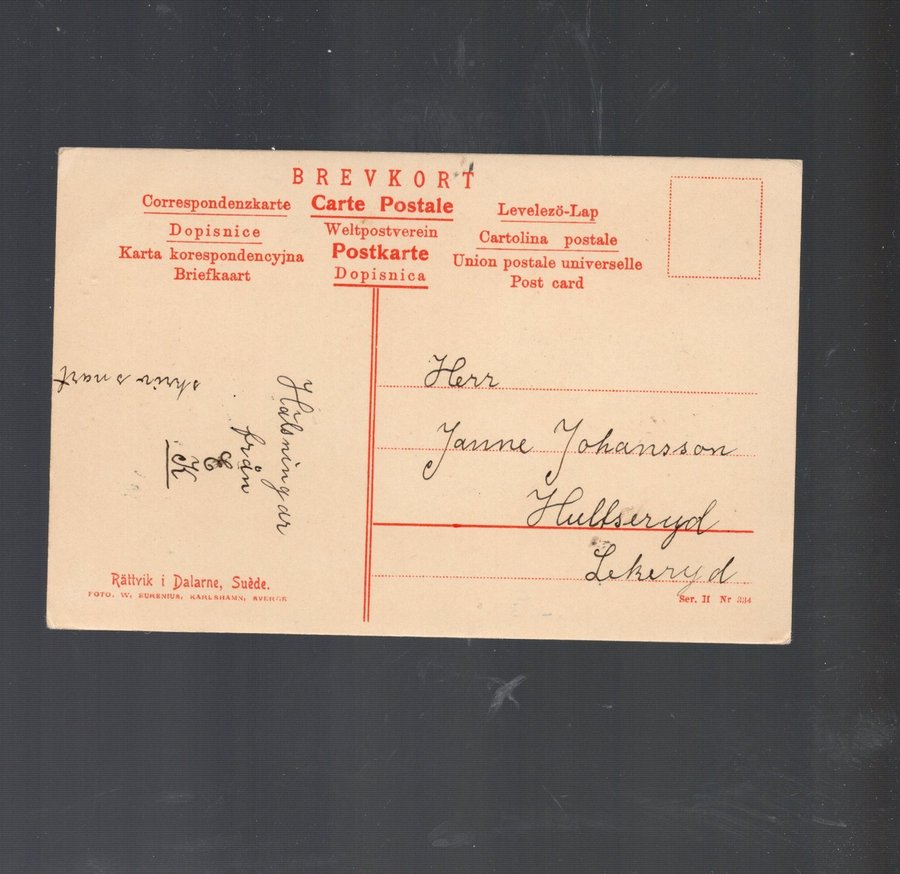 BREVKORT
Correspondenzkarte
Dopisnice
Karta korespondencyjna
Briefkaart
Carte Postale
Weltpostverein
Postkarte
Dopisnica
Levelezö-Lap
Cartolina postale
Union postale universelle
Post card
Hälsningar
från
E
K
skriv snart
Herr
Janne Johansson
Hultseryd
Lekeryd
Rättvik i Dalarne, Suède.
FOTO. W. EURENIUS, KARLSHAMN, SVERGE
Ser. II Nr 334